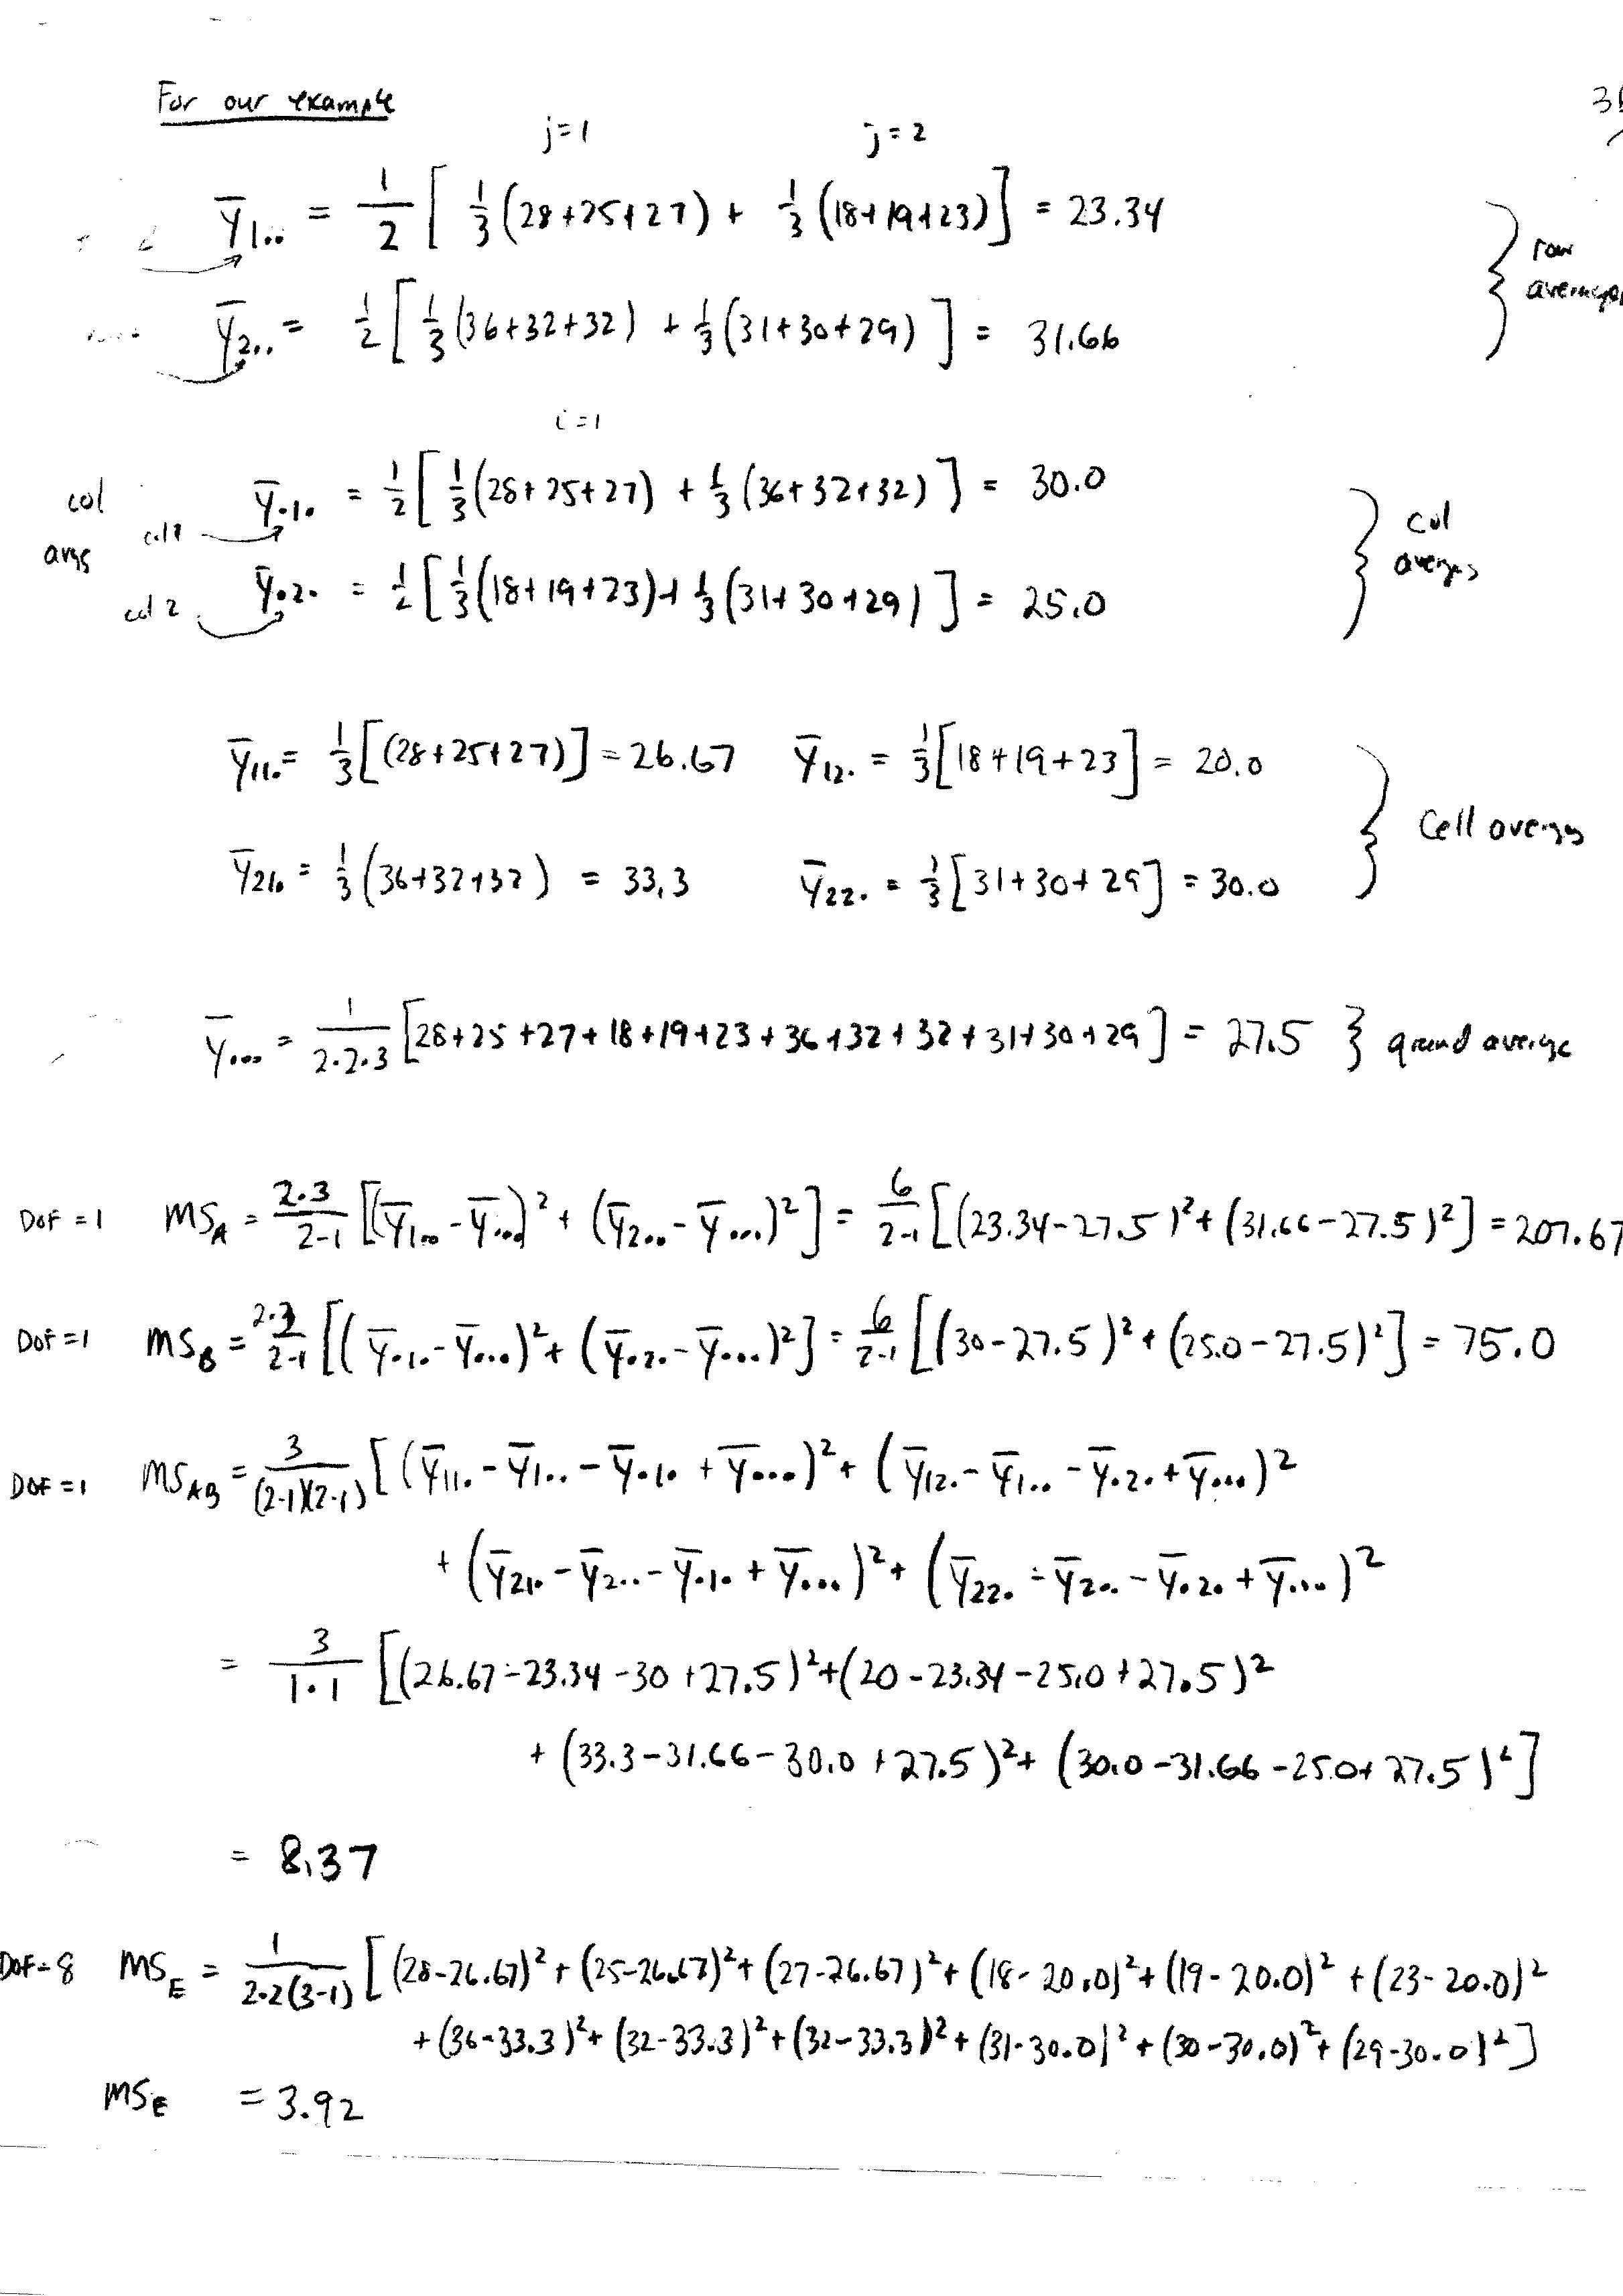 For our example
j=1 j=2
ȳ1.. = 1/2 [ 1/3 (28+25+27) + 1/3 (18+19+23) ] = 23.34
row
ȳ2.. = 1/2 [ 1/3 (36+32+32) + 1/3 (31+30+29) ] = 31.66
i=1
col avgs
col 1 ȳ.1. = 1/2 [ 1/3 (28+25+27) + 1/3 (36+32+32) ] = 30.0
col
col 2 ȳ.2. = 1/2 [ 1/3 (18+19+23) + 1/3 (31+30+29) ] = 25.0
ȳ11. = 1/3 [(28+25+27)] = 26.67 ȳ12. = 1/3 [18+19+23] = 20.0
Cell
ȳ21. = 1/3 (36+32+32) = 33.3 ȳ22. = 1/3 [31+30+29] = 30.0
ȳ... = 1/2·2·3 [28+25+27+18+19+23+36+32+32+31+30+29] = 27.5 } grand average
DOF=1 MS_A = 2·3/2-1 [(ȳ1.. - ȳ...)² + (ȳ2.. - ȳ...)²] = 6/2-1 [(23.34-27.5)² + (31.66-27.5)²] = 207.67
DOF=1 MS_B = 2·3/2-1 [(ȳ.1. - ȳ...)² + (ȳ.2. - ȳ...)²] = 6/2-1 [(30-27.5)² + (25.0-27.5)²] = 75.0
DOF=1 MS_AB = 3/(2-1)(2-1) [(ȳ11. - ȳ1.. - ȳ.1. + ȳ...)² + (ȳ12. - ȳ1.. - ȳ.2. + ȳ...)²
+ (ȳ21. - ȳ2.. - ȳ.1. + ȳ...)² + (ȳ22. - ȳ2.. - ȳ.2. + ȳ...)²
= 3/1·1 [(26.67-23.34-30+27.5)² + (20-23.34-25.0+27.5)²
+ (33.3-31.66-30.0+27.5)² + (30.0-31.66-25.0+27.5)²]
= 8.37
DOF=8 MS_E = 1/2·2(3-1) [(28-26.67)² + (25-26.67)² + (27-26.67)² + (18-20.0)² + (19-20.0)² + (23-20.0)²
+ (36-33.3)² + (32-33.3)² + (32-33.3)² + (31-30.0)² + (30-30.0)² + (29-30.0)²]
MS_E = 3.92